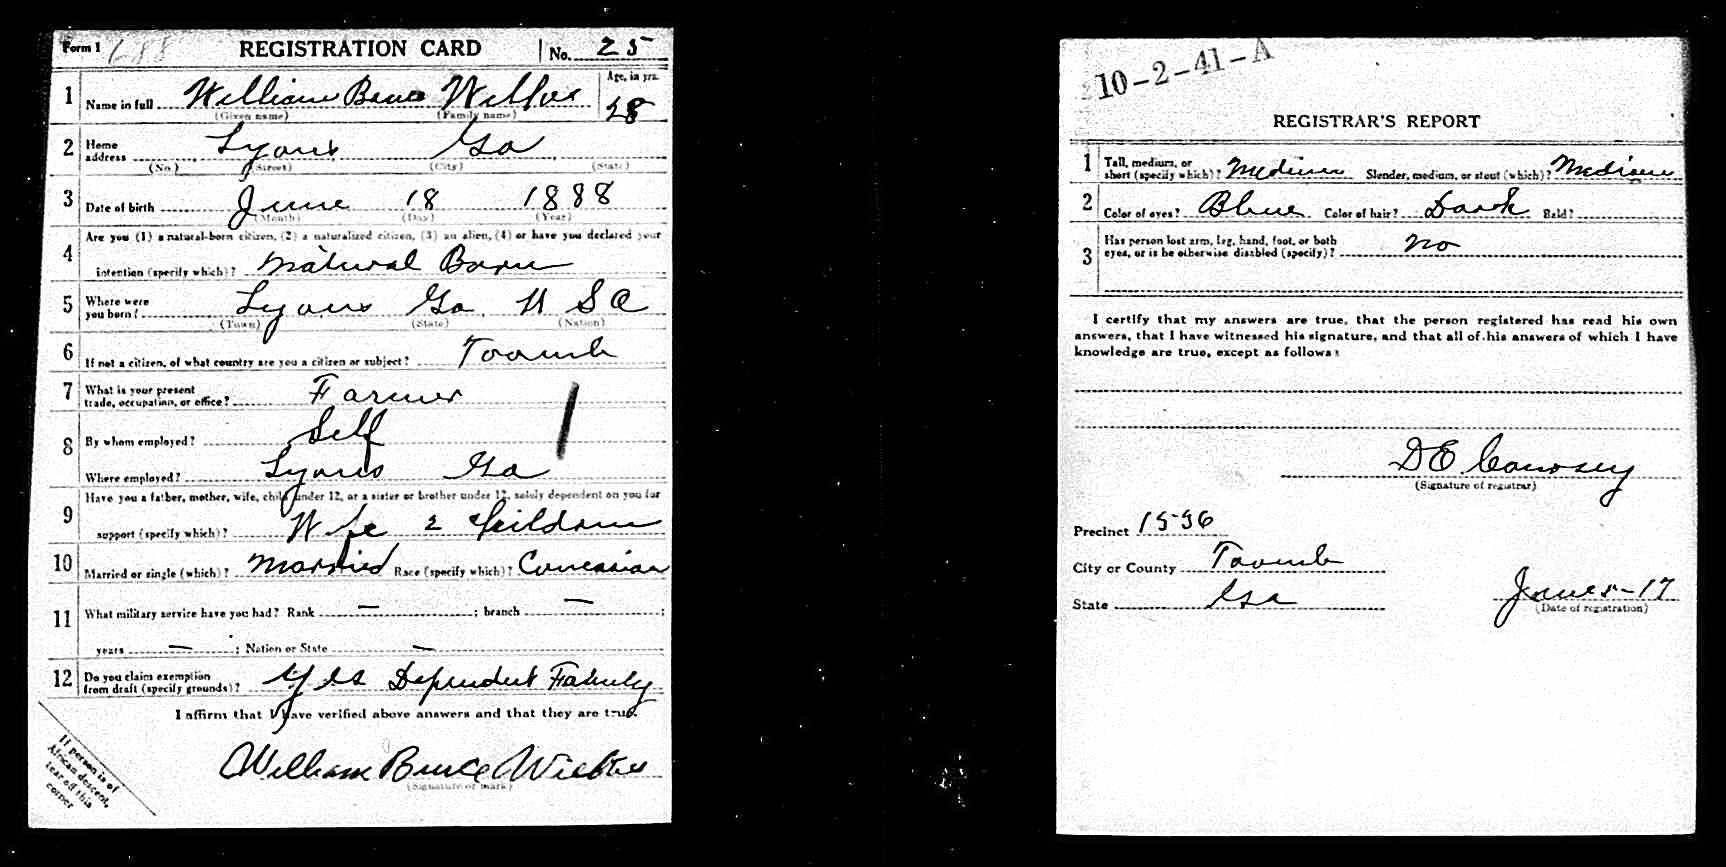 Form 1 688 REGISTRATION CARD No. 25
Age, in yrs.
1 Name in full William Bruce 28
(Given name) (Family name)
2 Home address Lyons Ga
(No.) (Street) (City) (State)
3 Date of birth June 18 1888
(Month) (Day) (Year)
4 Are you (1) a natural-born citizen, (2) a naturalized citizen, (3) an alien, (4) or have you declared your
intention (specify which)? Natural Born
5 Where were you born? Lyons Ga. U S A
(Town) (State) (Nation)
6 If not a citizen, of what country are you a citizen or subject? Toomb
7 What is your present trade, occupation, or office? Farmer
8 By whom employed? Self
Where employed? Lyons Ga
9 Have you a father, mother, wife, child under 12, or a sister or brother under 12, solely dependent on you for
support (specify which)? Wife 2 Children
10 Married or single (which)? Married Race (specify which)? Caucasian
11 What military service have you had? Rank — ; branch — ;
years — ; Nation or State —
12 Do you claim exemption from draft (specify grounds)? Yes Dependent Family
I affirm that I have verified above answers and that they are true.
William Bruce
(Signature or mark)
If person is of
African descent,
tear off this
corner
10-2-41-A
REGISTRAR'S REPORT
1 Tall, medium, or short (specify which)? Medium Slender, medium, or stout (which)? Medium
2 Color of eyes? Blue Color of hair? Dark Bald?
3 Has person lost arm, leg, hand, foot, or both
eyes, or is he otherwise disabled (specify)? no
I certify that my answers are true, that the person registered has read his own
answers, that I have witnessed his signature, and that all of his answers of which I have
knowledge are true, except as follows:
D E
(Signature of registrar)
Precinct 1536
City or County Toomb
State Ga June 5-17
(Date of registration)